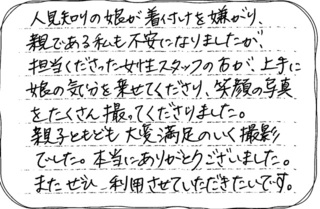 人見知りの娘が着付けを嫌がり、
親である私も不安になりましたが、
担当くださった女性スタッフの方が、上手に
娘の気分を乗せてくださり、笑顔の写真
をたくさん撮ってくださりました。
親子ともども大変満足のいく撮影
でした。本当にありがとうございました。
またぜひ利用させていただきたいです。